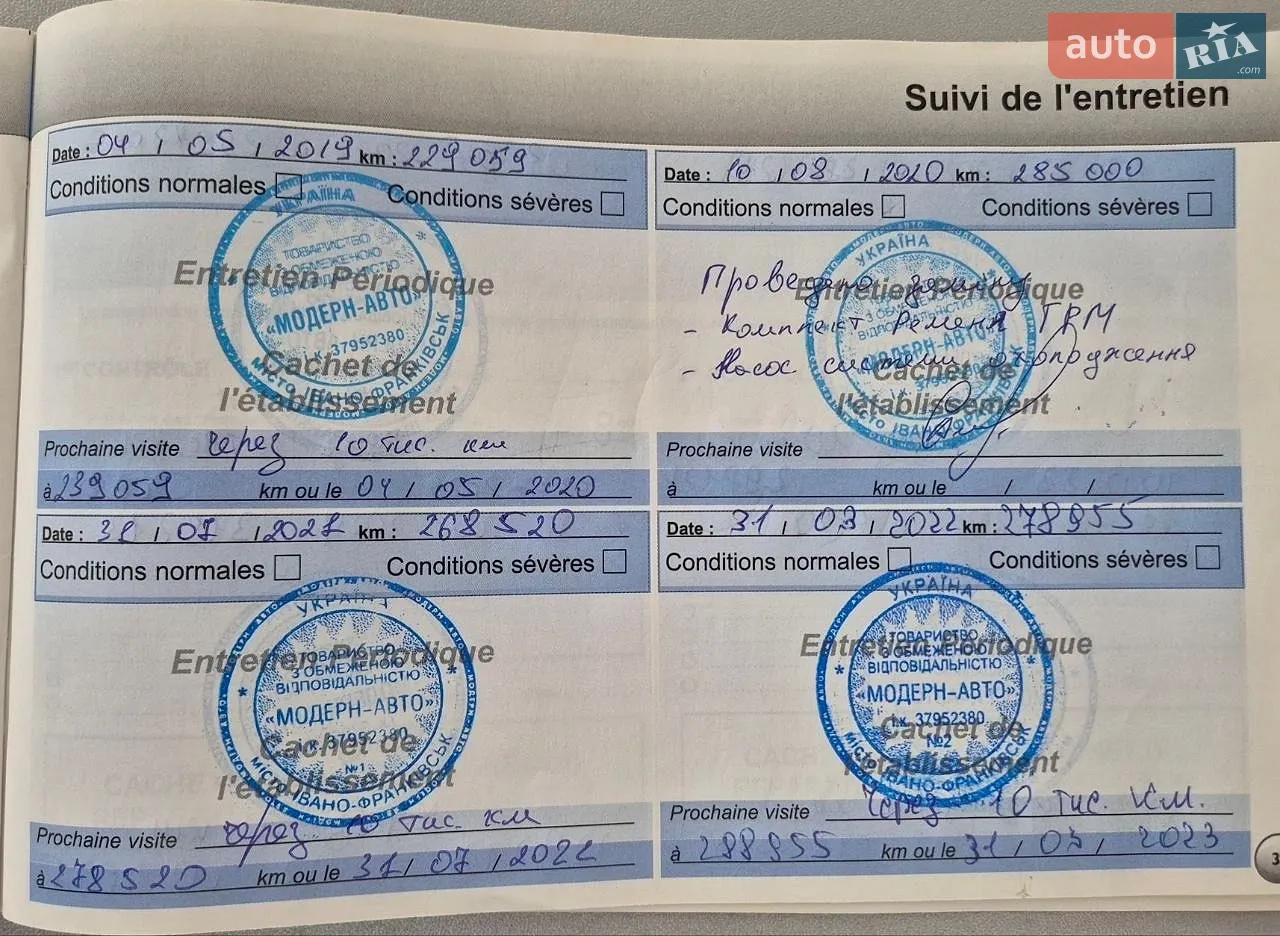 auto RIA.com
Suivi de l'entretien
Date : 04 / 05 / 2019 km : 229 059
Conditions normales Conditions sévères
УКРАЇНА
ТОВАРИСТВО
З ОБМЕЖЕНОЮ
ВІДПОВІДАЛЬНІСТЮ
«МОДЕРН-АВТО»
і.к. 37952380
МІСТО ІВАНО-ФРАНКІВСЬК
Entretien Périodique
Cachet de
l'établissement
Prochaine visite через 10 тис. км
à 239 059 km ou le 04 / 05 / 2020
Date : 10 / 08 / 2020 km : 285 000
Conditions normales Conditions sévères
УКРАЇНА
«МОДЕРН-АВТО»
і.к. 37952380
Entretien Périodique
Проведено заміну
- Комплект Ременя ГРМ
- Насос системи охолодження
Cachet de
l'établissement
Prochaine visite
à km ou le / /
Date : 31 / 07 / 2021 km : 268 520
Conditions normales Conditions sévères
УКРАЇНА
ТОВАРИСТВО
З ОБМЕЖЕНОЮ
ВІДПОВІДАЛЬНІСТЮ
«МОДЕРН-АВТО»
і.к. 37952380
№1
МІСТО ІВАНО-ФРАНКІВСЬК
Entretien Périodique
Cachet de
l'établissement
Prochaine visite через 10 тис. км
à 278 520 km ou le 31 / 07 / 2022
Date : 31 / 03 / 2022 km : 278955
Conditions normales Conditions sévères
УКРАЇНА
ТОВАРИСТВО
З ОБМЕЖЕНОЮ
ВІДПОВІДАЛЬНІСТЮ
«МОДЕРН-АВТО»
і.к. 37952380
№2
МІСТО ІВАНО-ФРАНКІВСЬК
Entretien Périodique
Cachet de
l'établissement
Prochaine visite Через 10 тис. км.
à 288955 km ou le 31 / 03 / 2023
3